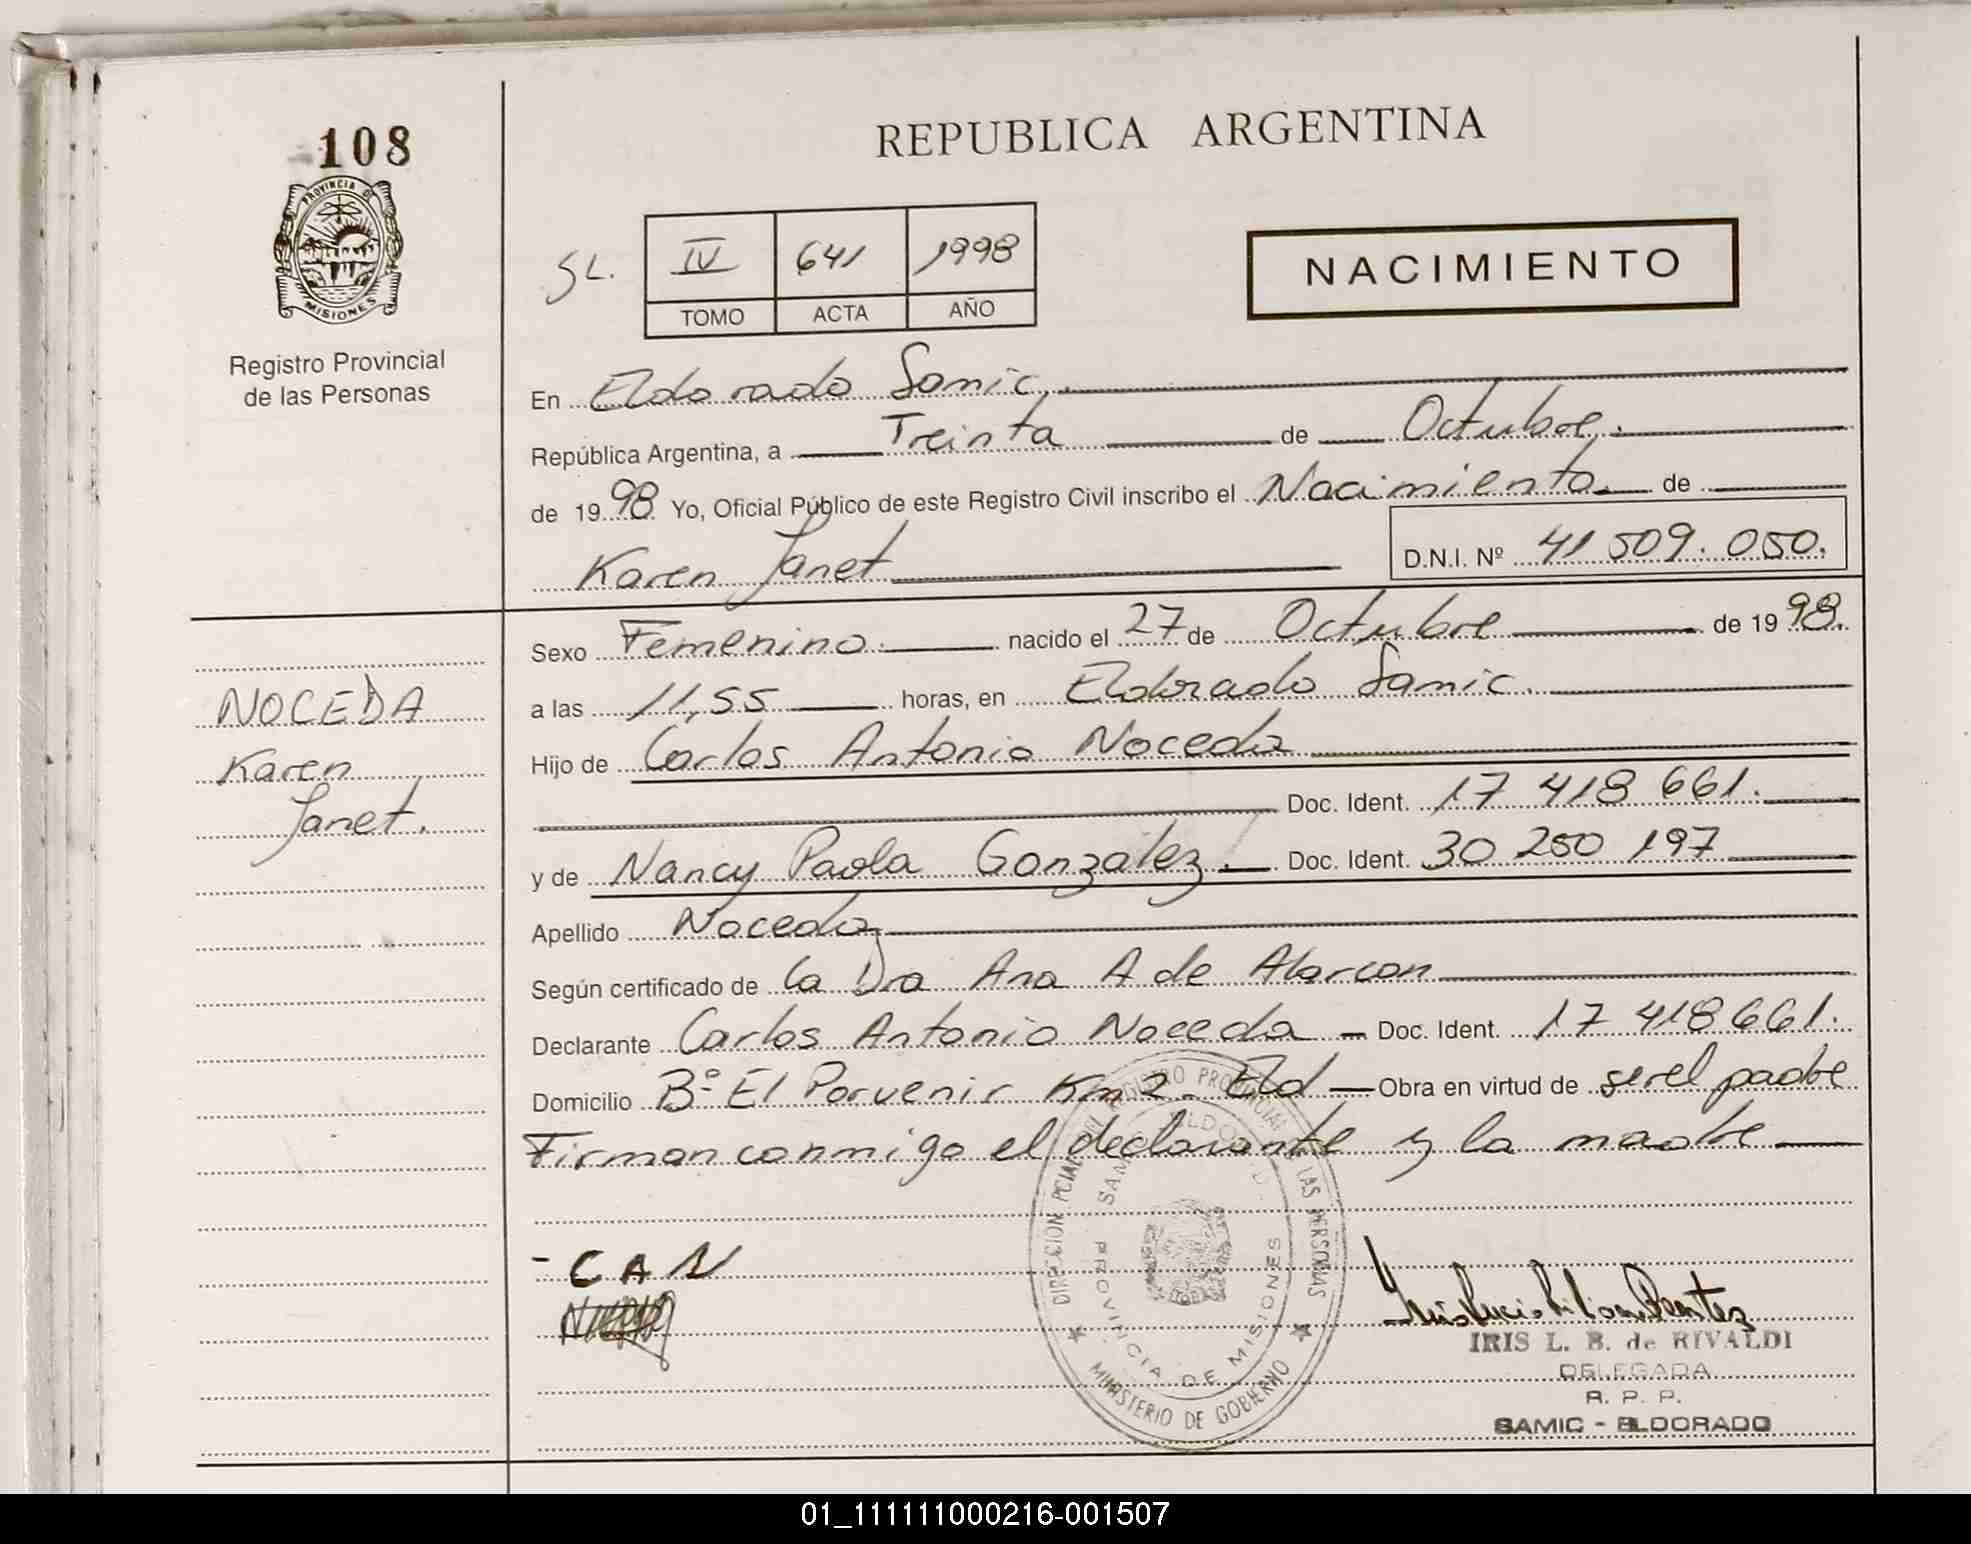 108
PROVINCIA DE
MISIONES
Registro Provincial
de las Personas
REPUBLICA ARGENTINA
SL.
IV 641 1998
TOMO ACTA AÑO
NACIMIENTO
En Eldorado Samic.
República Argentina, a Treinta de Octubre.
de 1998 Yo, Oficial Público de este Registro Civil inscribo el Nacimiento de
Karen Janet D.N.I. Nº 41 509.050.
Sexo Femenino. nacido el 27 de Octubre de 1998.
NOCEDA
Karen
Janet.
a las 11,55 horas, en Eldorado Samic.
Hijo de Carlos Antonio Noceda
Doc. Ident. 17 418 661.
y de Nancy Paola Gonzalez. Doc. Ident. 30 250 197
Apellido Noceda
Según certificado de La Dra Ana A de Alarcon
Declarante Carlos Antonio Noceda - Doc. Ident. 17 418 661.
Domicilio Bº El Porvenir Km 2. Eld - Obra en virtud de ser el padre
Firman conmigo el declarante y la madre
- C A N
DIRECCION PCIAL DEL REGISTRO PROVINCIAL DE LAS PERSONAS
MINISTERIO DE GOBIERNO
PROVINCIA DE MISIONES
IRIS L. B. de RIVALDI
DELEGADA
R. P. P.
SAMIC - ELDORADO
01_111111000216-001507